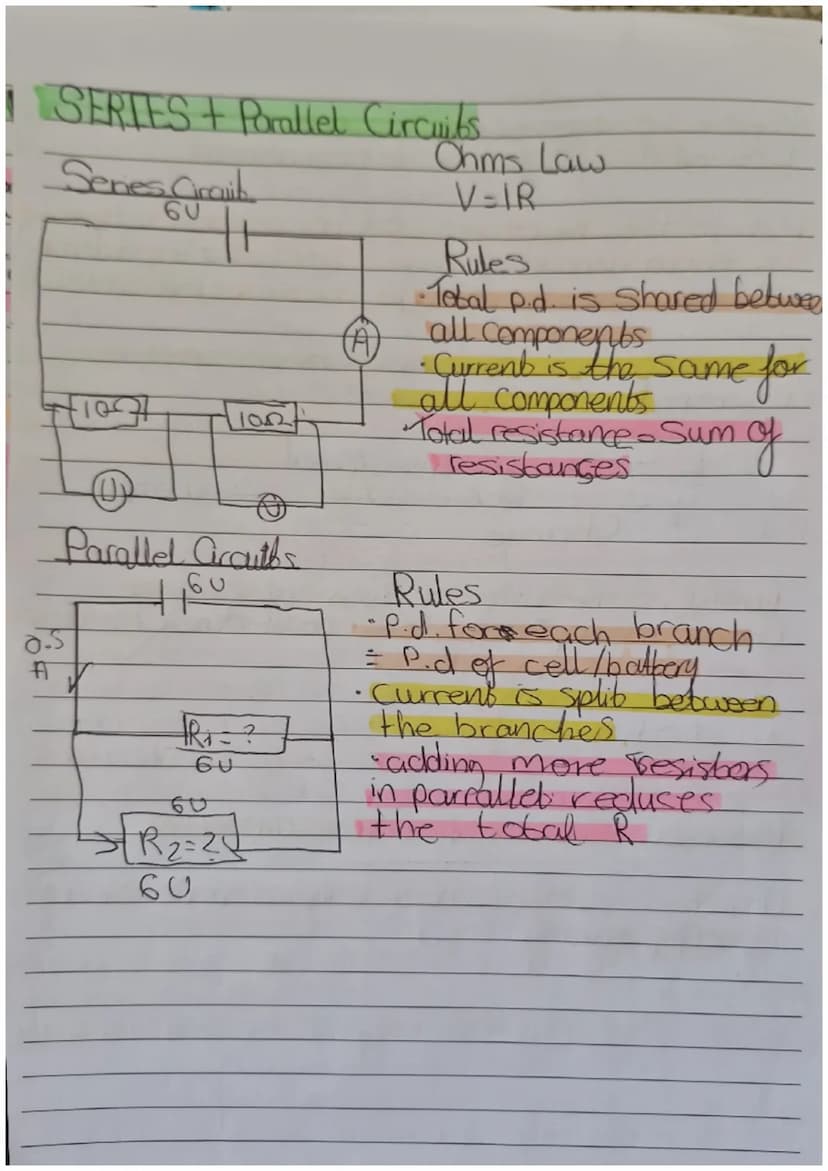 SERIES + Parallel Circuits
Ohms Law
V=IR
Series Circuit
6V
A
10Ω
10Ω
V
V
Rules
· Total p.d. is shared betwee
all components
· Current is the same for
all components
· Total resistance = Sum of
resistances
Parallel Circuits
6V
0.5
A
R1 = ?
6V
6V
R2 = ?
6V
Rules
· P.d. for each branch
= P.d of cell/battery
· Current is split between
the branches
· adding more resistors
in parrallel reduces
the total R